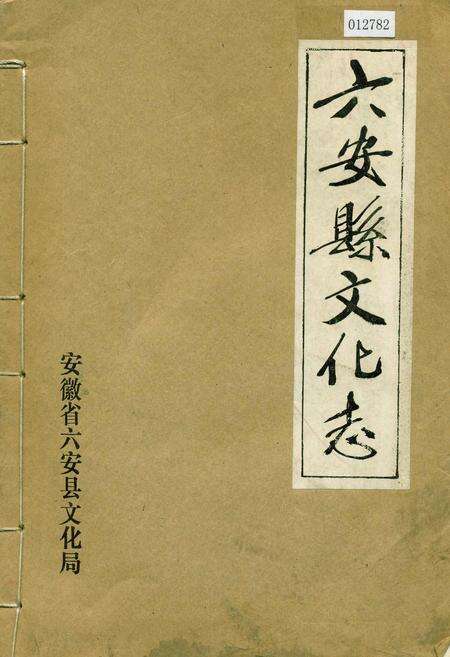 012782
六安縣文化志
安徽省六安县文化局